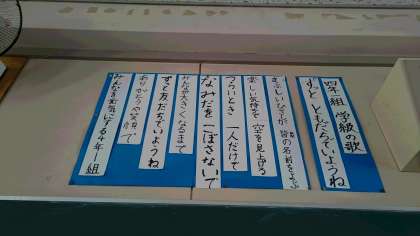 四年一組 学級の歌
ずっと ともだちでいようね
まぶしいひざしが 皆の名前をよぶ
楽しい気持を 空を見上げる
つらいとき 一人だけで
なみだを こぼさないで
みんな大きくなるまで
ずっと友だちでいようね
ありがとうや笑顔で
みんなを元気にする4年1組